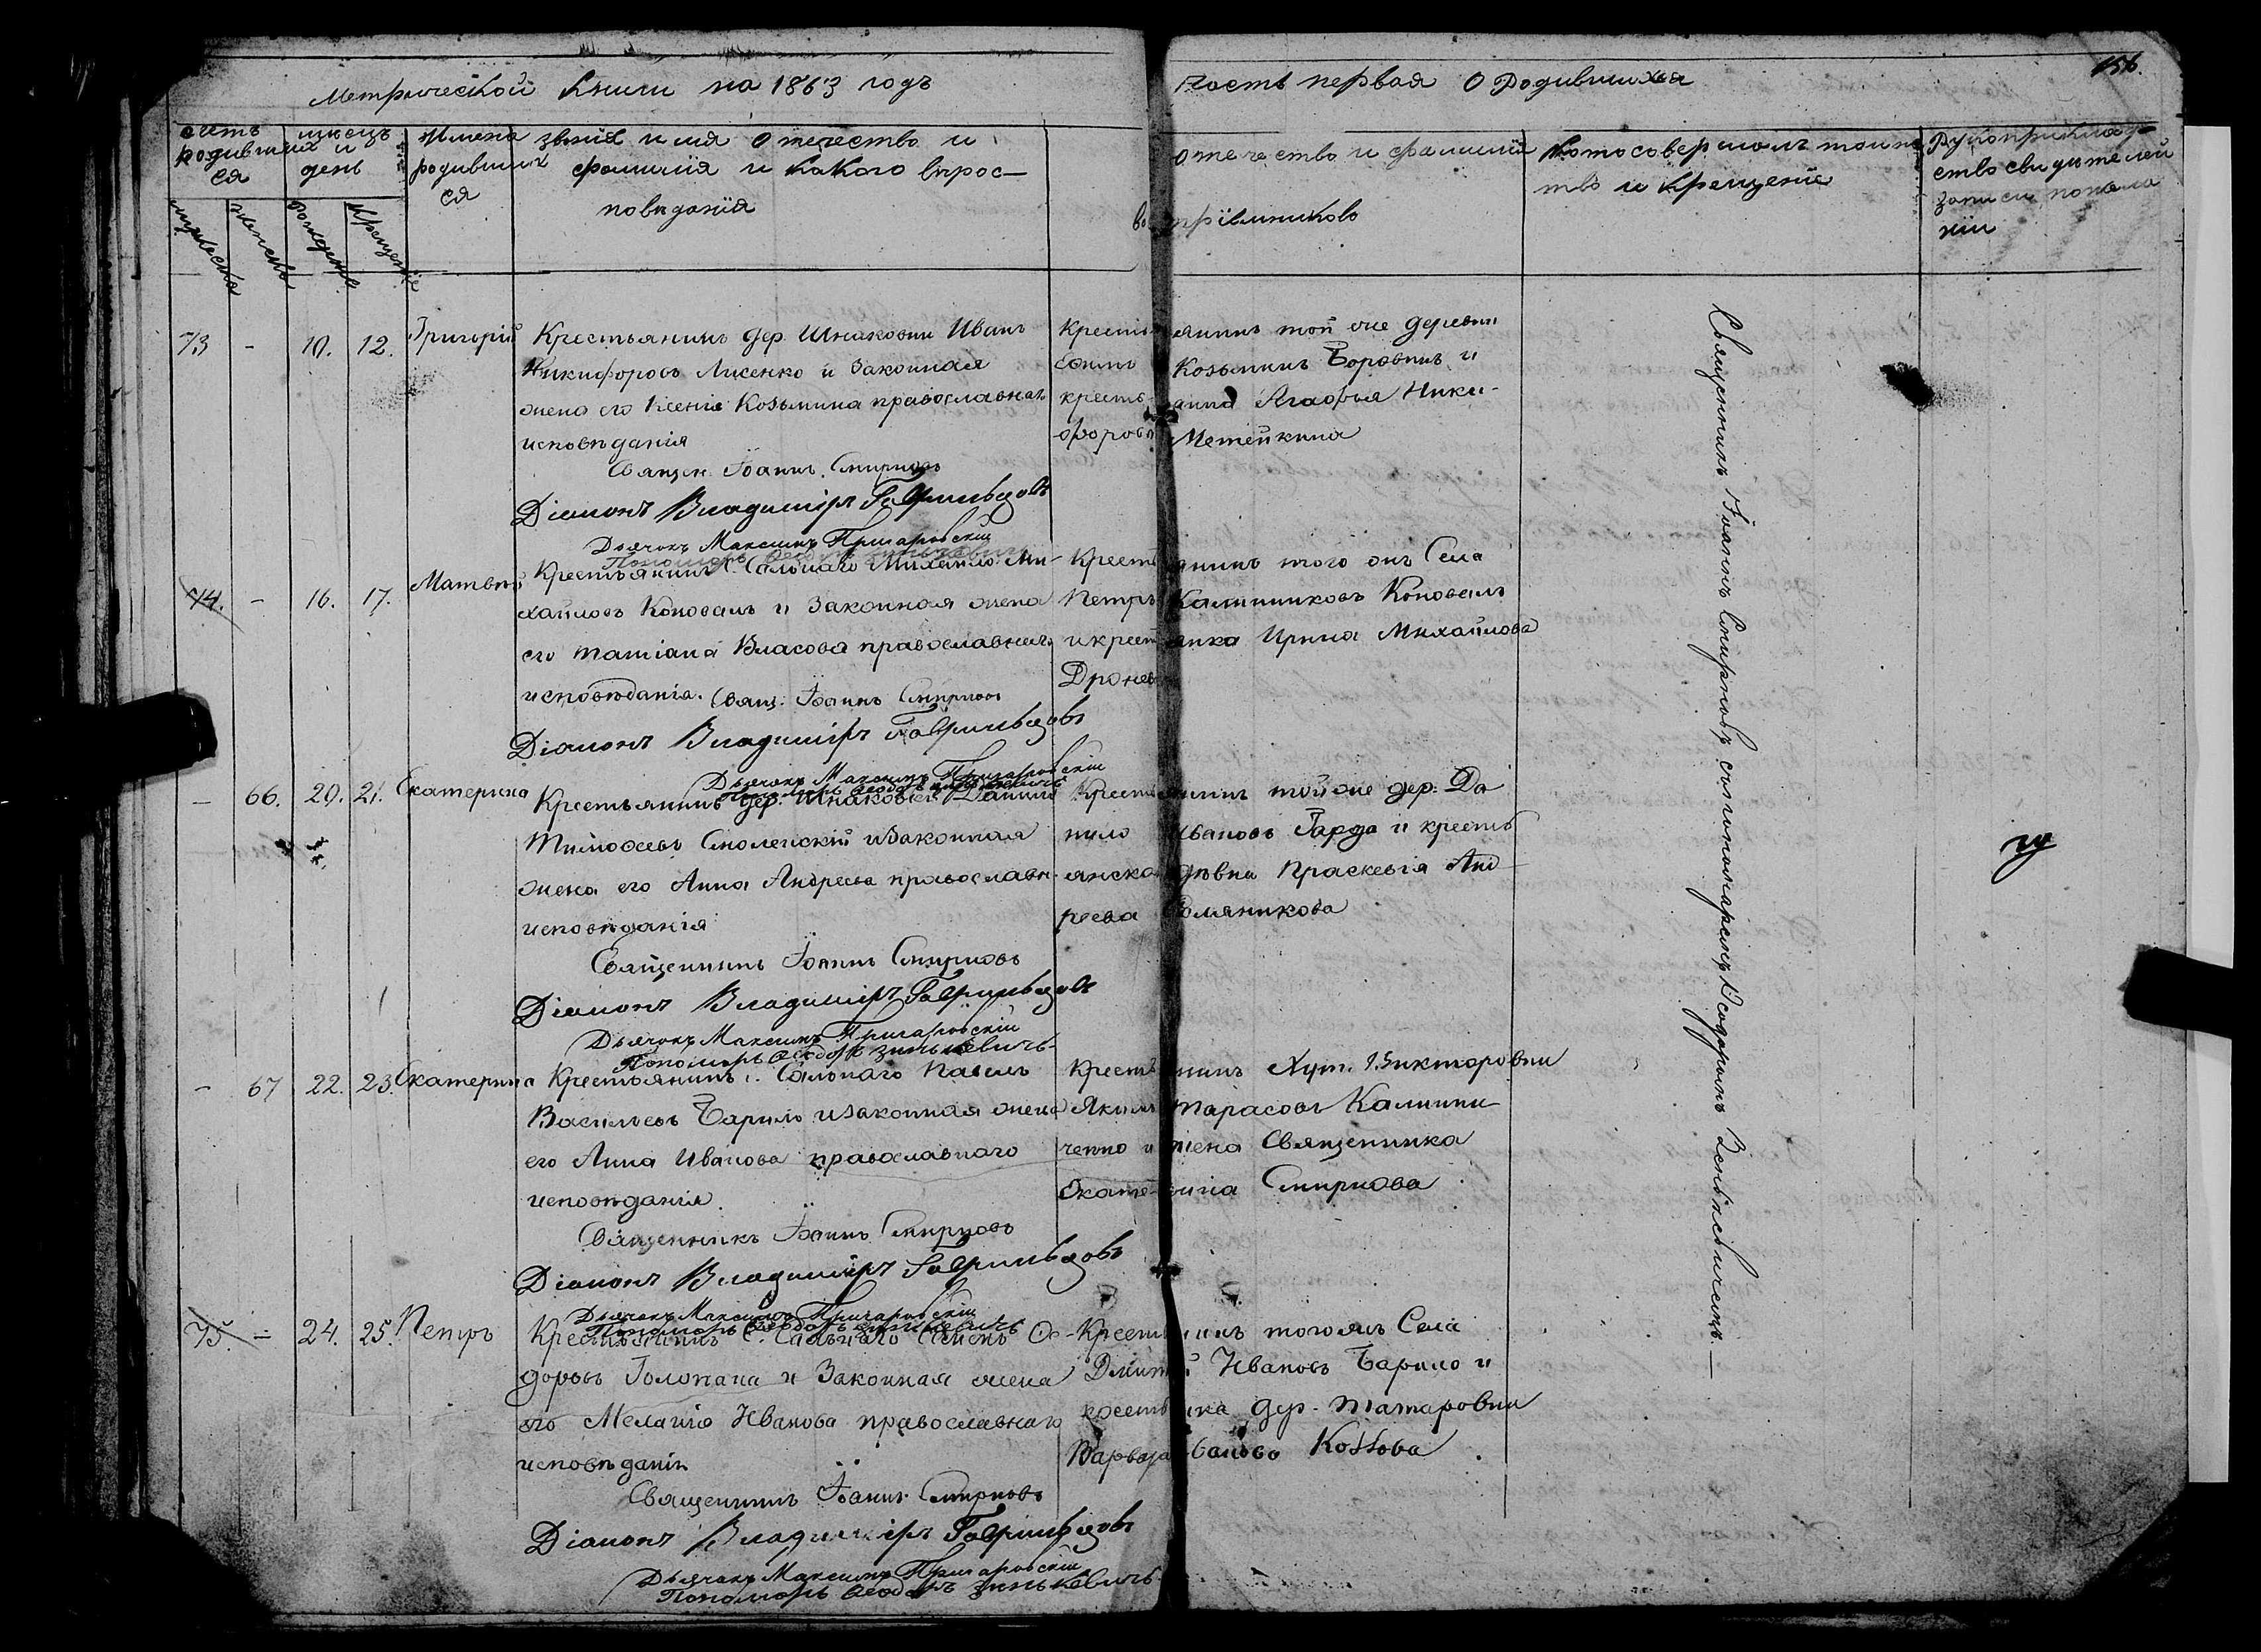 Метрической Книги на 1863 годъ
Часть первая О Родившихся
156.
счетъ родившихся
мѣсяцъ и день
Имена родившихся
званія имя отечество и
фамилія и какого вѣрос-
повѣданія
отечество и фамилія
воспріемниковъ
Кто совершалъ таинс
тво и Крещеніе
Рукоприклад
ство свидѣтелей
записи по жела
нію
мужеска
женска
рожденія
крещенія
73 - 10. 12. Григорій
Крестьянинъ дер. Шнаковки Иванъ
Никифоровъ Лисенко и Законная
жена его Ксенія Козьмина православнаг
исповѣданія
Священ. Іоаннъ Смирновъ
Діаконъ Владиміръ
Дьячокъ Максимъ Пригаровскій
Крестьянинъ той же деревни
Козьминъ Боровикъ и
кресть анка Агафья Ники-
форов Метейкина
74. - 16. 17. Матвѣй
Крестьянинъ С. Сальнаго Михаило Ми-
хайловъ Коновалъ и Законная жена
его Татіана Власова православнаго
исповѣданія. Свящ. Іоаннъ Смирновъ
Діаконъ Владиміръ
Дьячокъ Максимъ Пригаровскій
Пономарь Ѳеодоръ Зинькевичъ
Крестьянинъ того жъ Села
Петръ Калинниковъ Коновалъ
и крест янка Ирина Михайлова
Дронев
- 66. 20. 21. Екатерина
Крестьянинъ дер. Шнаковки Данило
Тимоѳеевъ Смоленскій и Законная
жена его Анна Андреева православн.
исповѣданія
Священникъ Іоаннъ Смирновъ
Діаконъ Владиміръ
Дьячокъ Максимъ Пригаровскій
Пономарь Ѳеодоръ Зинькевичъ
Крестьянинъ той же дер. Да
нило Ивановъ Гарда и кресть
янска дѣвка Праскевія Анд
реева
- 67 22. 23. Екатерина
Крестьянинъ С. Сальнаго Павелъ
Васильевъ Барило и законная жена
его Анна Иванова православнаго
исповѣданія.
Священникъ Іоаннъ Смирновъ
Діаконъ Владиміръ
Дьячокъ Максимъ Пригаровскій
Пономарь Ѳеодоръ Зинькевичъ
Крестьянинъ Хут. Викторовки
Якимъ Тарасовъ Калини-
ченко и жена Священника
Екатерина Смирнова
75. - 24. 25. Петръ
Крестьянинъ С. Сальнаго Семенъ Ѳе-
доровъ Голопапа и Законная жена
его Мелагія Иванова православнаго
исповѣданія
Священникъ Іоаннъ Смирновъ
Діаконъ Владиміръ
Дьячокъ Максимъ Пригаровскій
Пономарь Ѳеодоръ Зинькевичъ
Крестьянинъ того жъ Села
Дмитрій Ивановъ Барило и
крестьянка дер. Татаровки
Варвара Иванова
Священникъ Іоаннъ Смирновъ съ пономаремъ Ѳеодоромъ Зенькевичемъ.